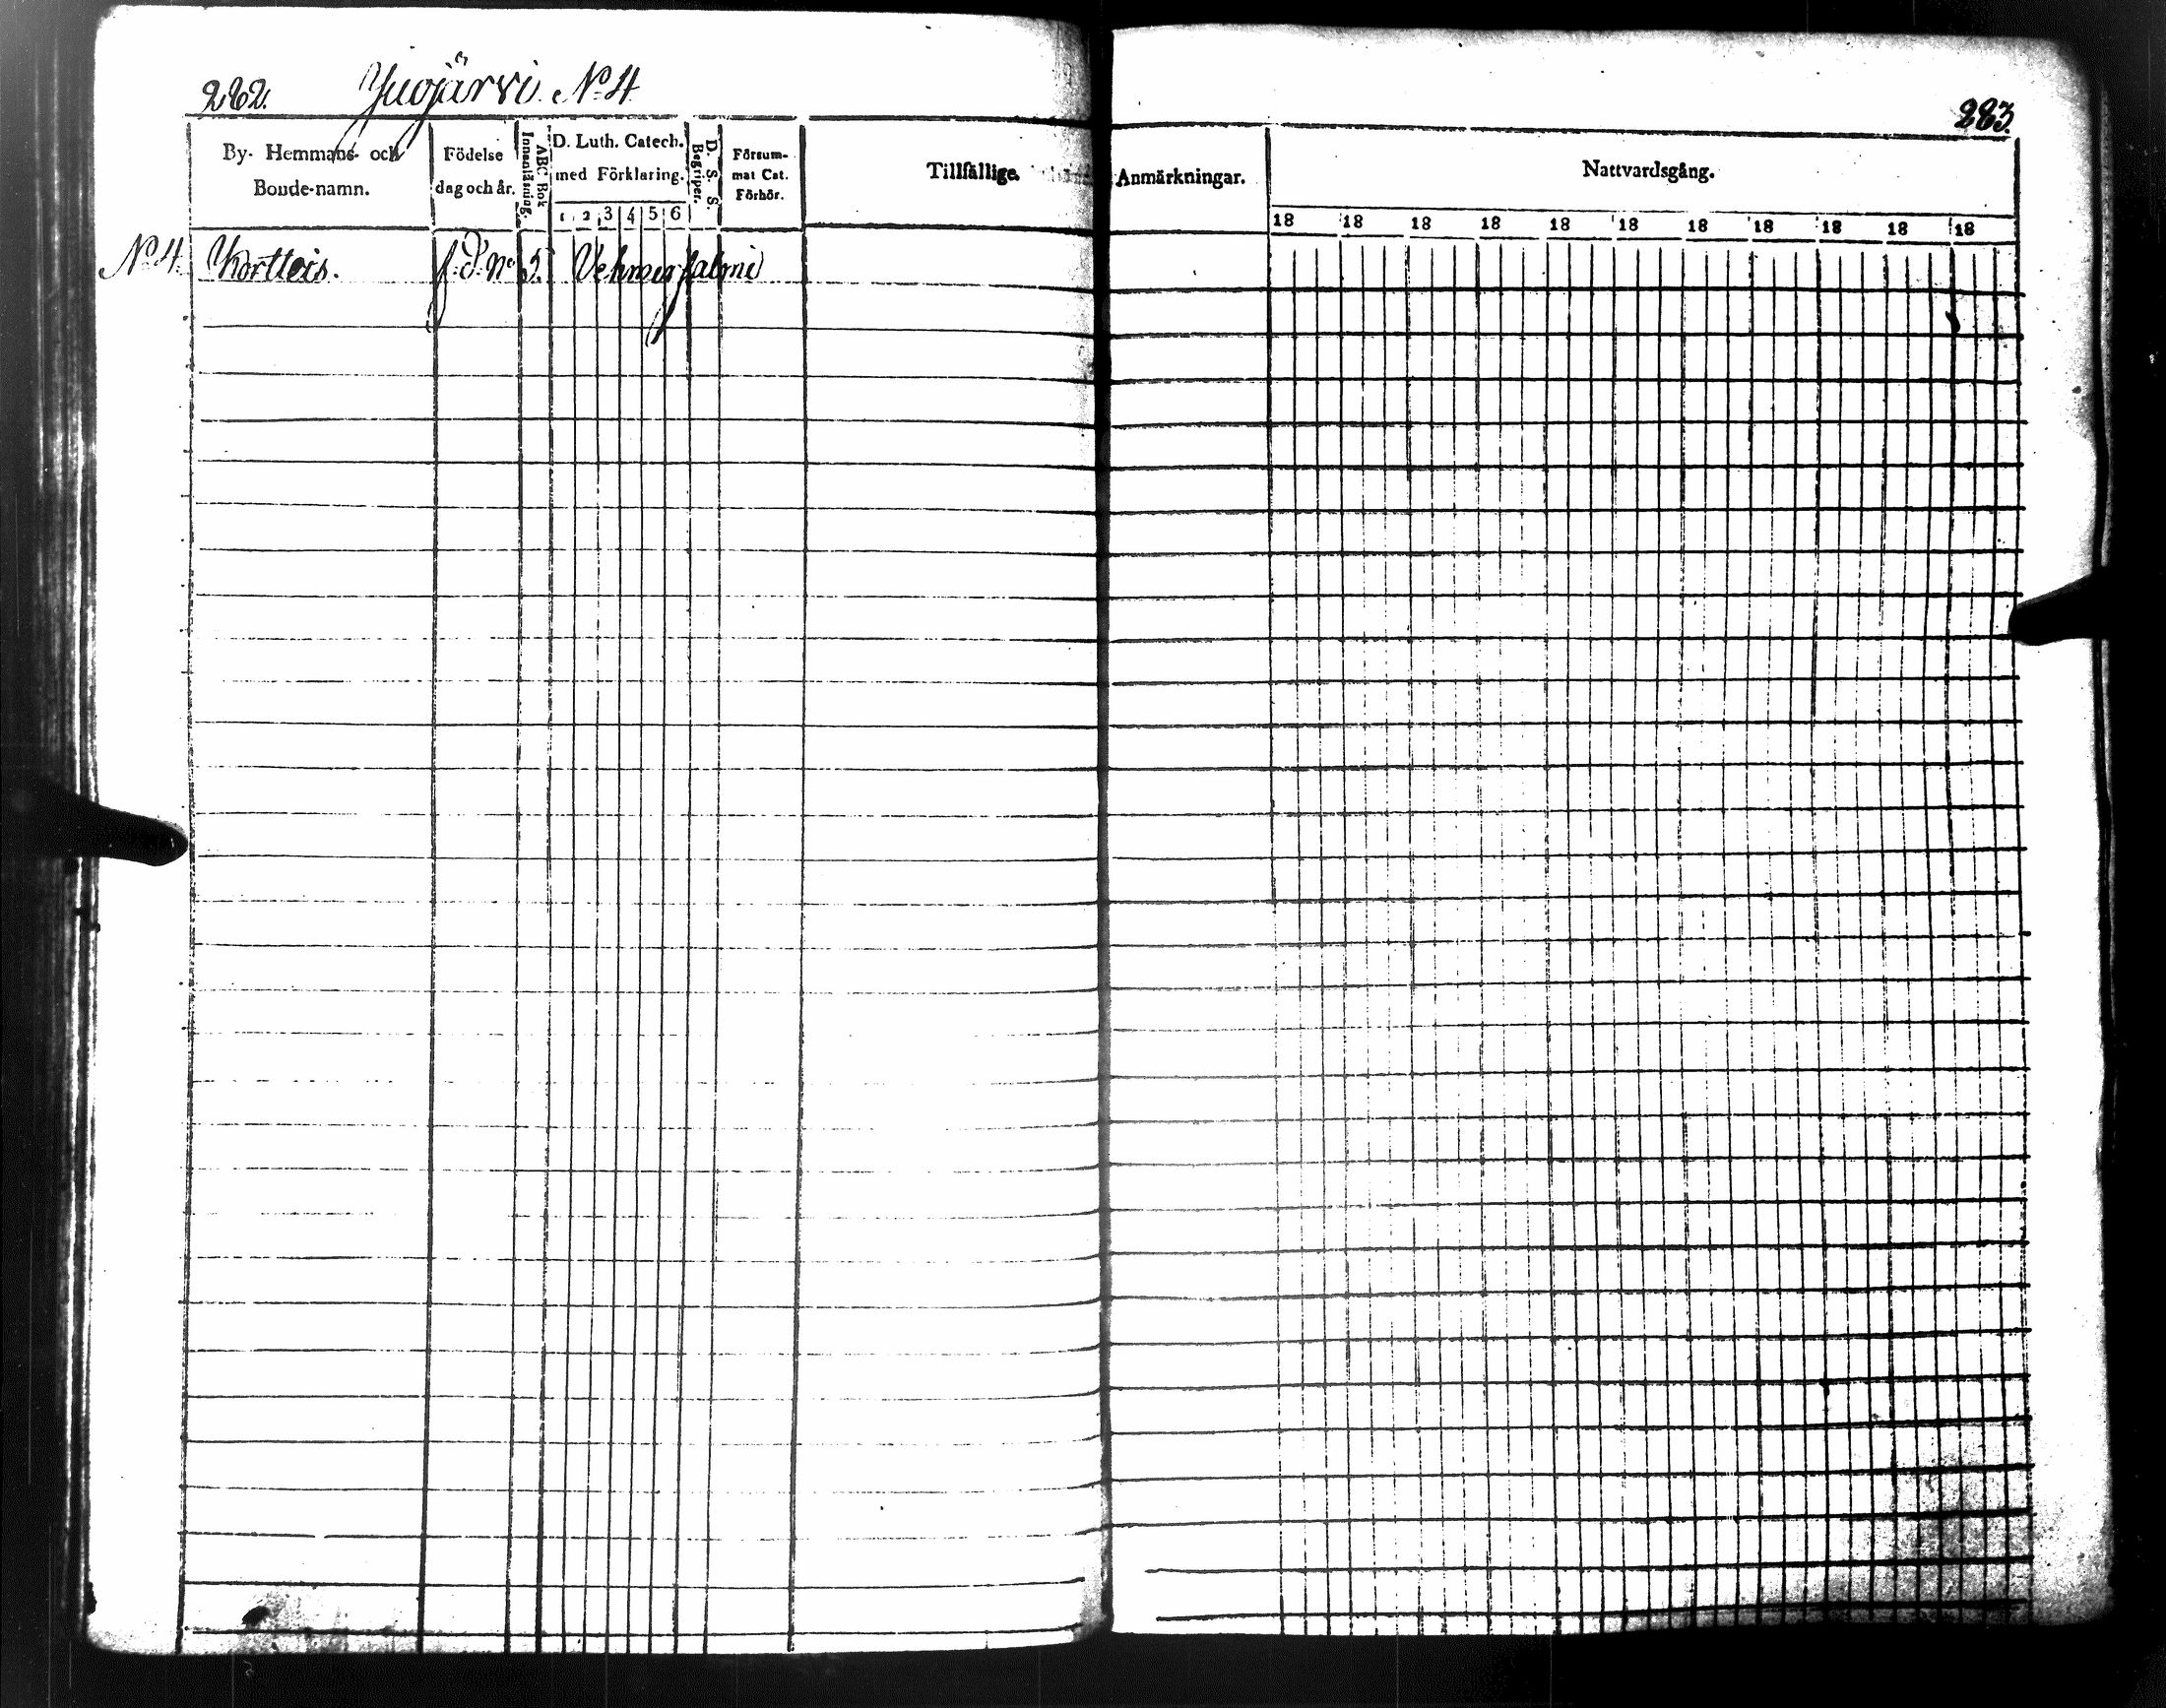 282. Yuojärvi No 4
283.
By- Hemmans- och Bonde-namn.
Födelse dag och år.
ABC Bok Innanläsning.
D. Luth. Catech. med Förklaring.
1 2 3 4 5 6
D. S. S. Begriper.
Försummat Cat. Förhör.
Tillfällige
Anmärkningar.
Nattvardsgång.
18 18 18 18 18 18 18 18 18 18 18
No 4 Kortteis. No 5. Vehmersalmi